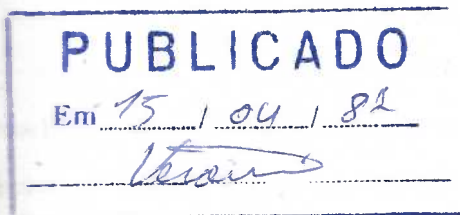 PUBLICADO
Em 15 / 04 / 82